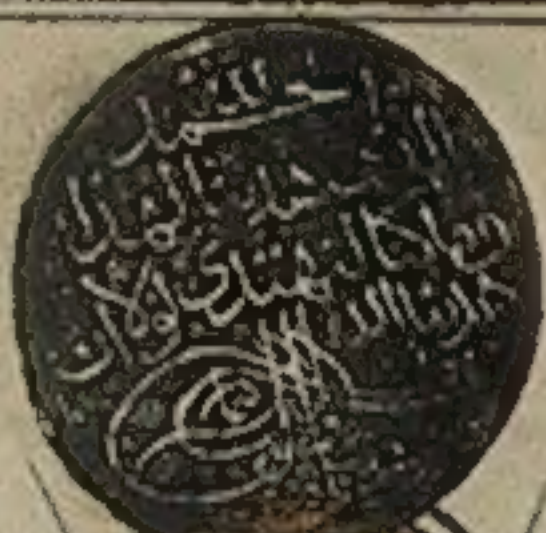 الحمد لله
الذي هدانا لهذا
وما كنا لنهتدي لولا ان
هدانا الله